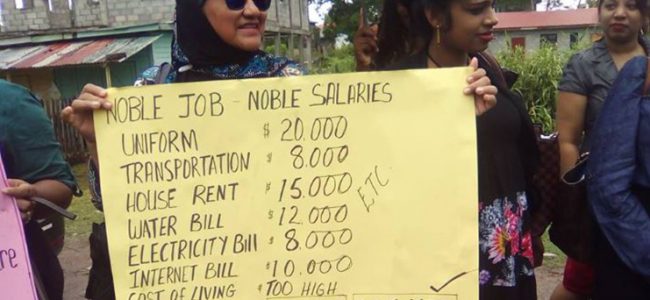 NOBLE JOB - NOBLE SALARIES
UNIFORM $ 20.000
TRANSPORTATION $ 8.000
HOUSE RENT $ 15.000
ETC.
WATER BILL $ 12.000
ELECTRICITY BILL $ 8.000
INTERNET BILL $ 10.000
COST OF LIVING $ TOO HIGH
re